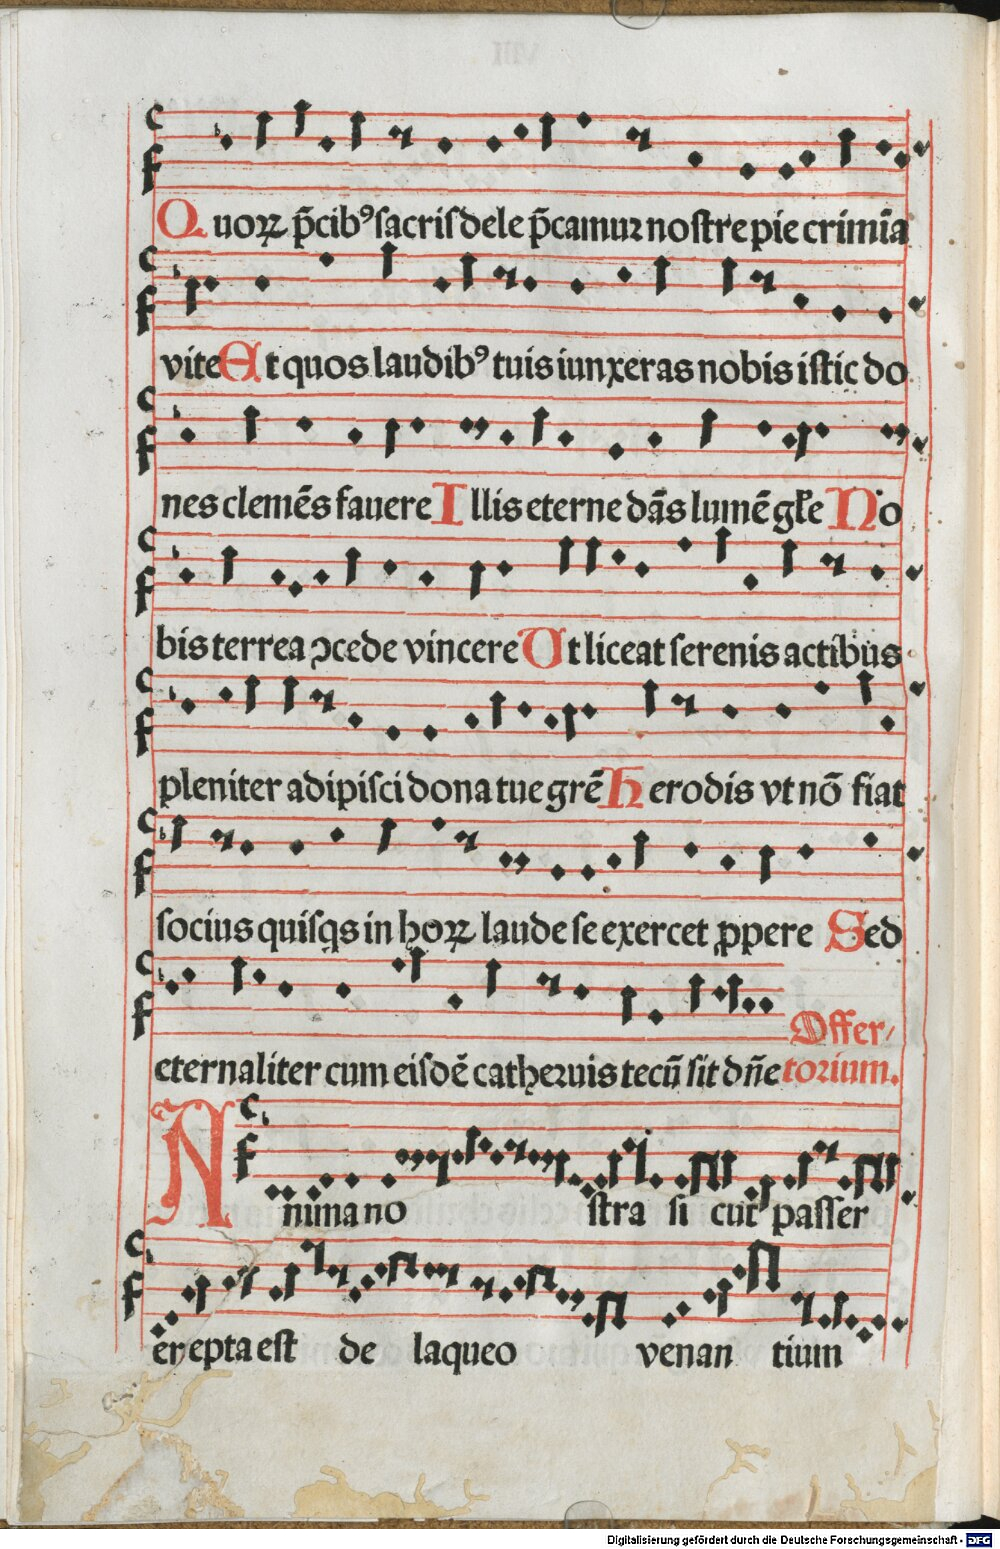 Quoꝝ p̄cibꝰ sacris dele p̄camur nostre pie crimīa
vite Et quos laudibꝰ tuis iunxeras nobis istic do
nes clemēs fauere Illis eterne dās lumē gl̄e No
bis terrea ꝯcede vincere Ut liceat serenis actibus
pleniter adipisci dona tue grē Herodis vt nō fiat
socius quisqs in hoꝝ laude se exercet ꝓpere Sed
eternaliter cum eisdē catheruis tecū sit dn̄e Offer/
torium.
Anima nostra sicut passer
erepta est de laqueo venantium
Digitalisierung gefördert durch die Deutsche Forschungsgemeinschaft - DFG